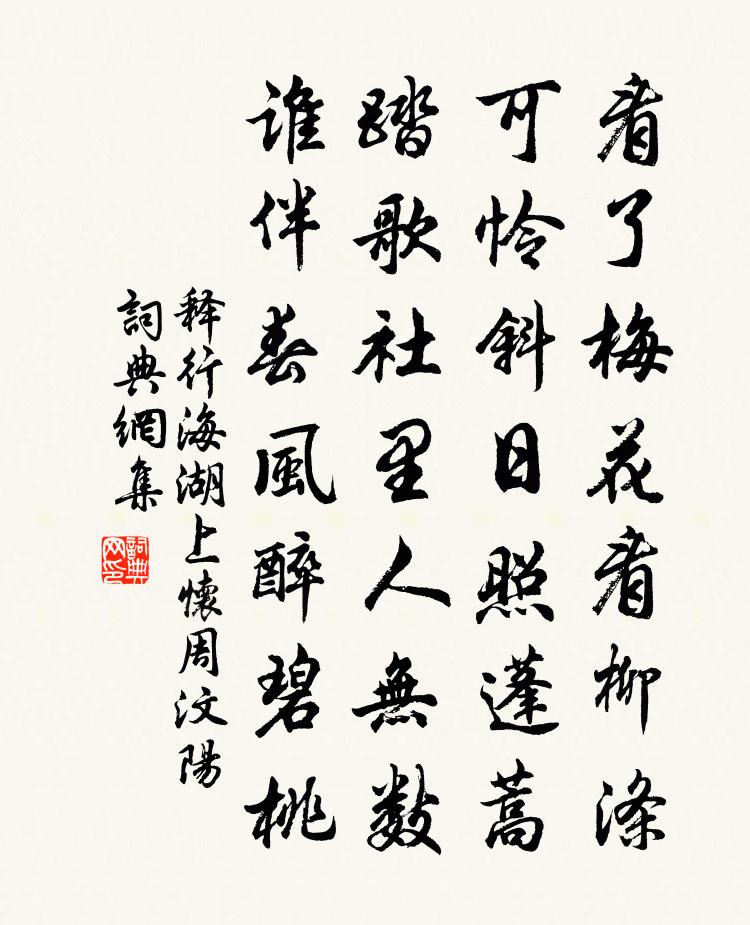 看了梅花看柳條
可憐斜日照蓬蒿
踏歌社里人無數
誰伴春風醉碧桃
释行海湖上懷周汶陽
詞典網集
詞典网印